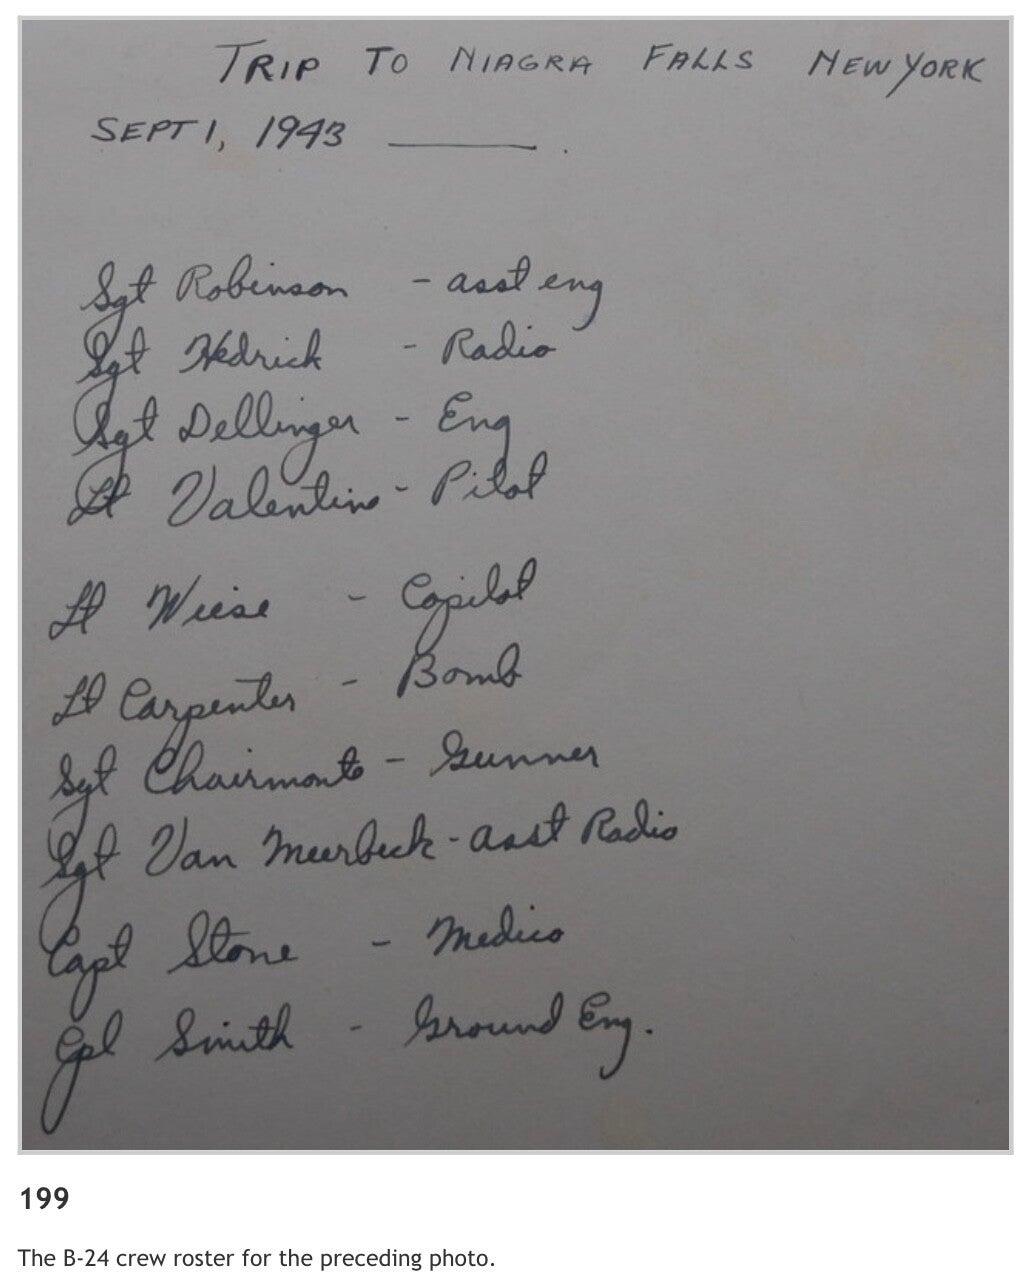 TRIP TO NIAGRA FALLS NEW YORK
SEPT 1, 1943 ______ .
Sgt Robinson - asst eng
Sgt Hedrick - Radio
Sgt Dellinger - Eng
Lt Valentine - Pilot
Lt Wiese - Copilot
Lt Carpenter - Bomb
Sgt Chairmonte - Gunner
Sgt Van Meerbeck - asst Radio
Capt Stone - Medico
Cpl Smith - Ground Eng.
199
The B-24 crew roster for the preceding photo.